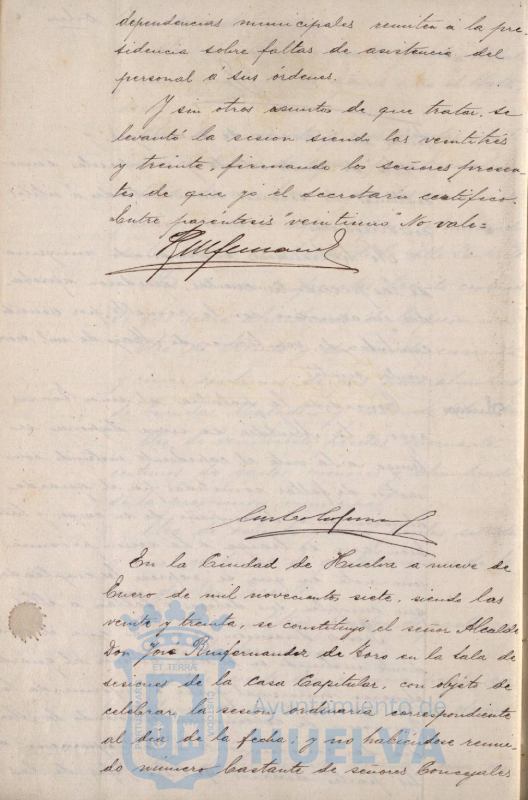 dependencias municipales remiten á la pre-
sidencia sobre faltas de asistencia del
personal á sus órdenes.
Y sin otros asuntos de que tratar, se
levantó la sesion siendo las veintitrés
y treinta, firmando los señores presen-
tes de que yo el secretario certifico.
Entre paréntesis "veintiuno" No vale=
En la Ciudad de Huelva a nueve de
Enero de mil novecientos siete, siendo las
veinte y treinta, se constituyó el señor Alcalde
Don José Ruifernandez de Toro en la Sala de
sesiones de la casa Capitular, con objeto de
celebrar la sesion ordinaria correspondiente
al dia de la fecha, y no habiéndose reuni-
do número bastante de señores Concejales
ET TERRÆ
PORTUS MARIS
CUSTODIA
Ayuntamiento de
HUELVA